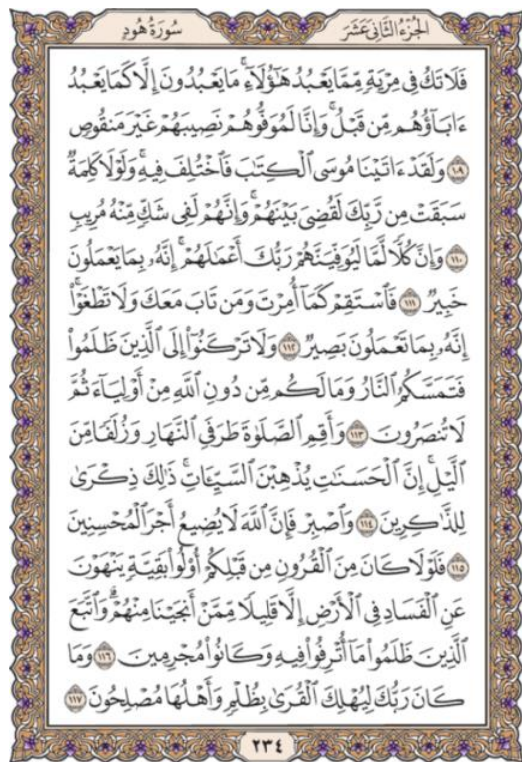 الجُزْءُ الثَّانِي عَشَرَ
سُورَةُ هُودٍ
فَلَا تَكُ فِي مِرْيَةٍ مِّمَّا يَعْبُدُ هَٰٓؤُلَآءِۚ مَا يَعْبُدُونَ إِلَّا كَمَا يَعْبُدُ
ءَابَآؤُهُم مِّن قَبْلُۚ وَإِنَّا لَمُوَفُّوهُمْ نَصِيبَهُمْ غَيْرَ مَنقُوصٍ
١٠٩ وَلَقَدْ ءَاتَيْنَا مُوسَى ٱلْكِتَٰبَ فَٱخْتُلِفَ فِيهِۚ وَلَوْلَا كَلِمَةٌ
سَبَقَتْ مِن رَّبِّكَ لَقُضِيَ بَيْنَهُمْۚ وَإِنَّهُمْ لَفِي شَكٍّ مِّنْهُ مُرِيبٍ
١١٠ وَإِنَّ كُلًّا لَّمَّا لَيُوَفِّيَنَّهُمْ رَبُّكَ أَعْمَٰلَهُمْۚ إِنَّهُۥ بِمَا يَعْمَلُونَ
خَبِيرٌ ١١١ فَٱسْتَقِمْ كَمَآ أُمِرْتَ وَمَن تَابَ مَعَكَ وَلَا تَطْغَوْا۟ۚ
إِنَّهُۥ بِمَا تَعْمَلُونَ بَصِيرٌ ١١٢ وَلَا تَرْكَنُوٓا۟ إِلَى ٱلَّذِينَ ظَلَمُوا۟
فَتَمَسَّكُمُ ٱلنَّارُ وَمَا لَكُم مِّن دُونِ ٱللَّهِ مِنْ أَوْلِيَآءَ ثُمَّ
لَا تُنصَرُونَ ١١٣ وَأَقِمِ ٱلصَّلَوٰةَ طَرَفَيِ ٱلنَّهَارِ وَزُلَفًا مِّنَ
ٱلَّيْلِۚ إِنَّ ٱلْحَسَنَٰتِ يُذْهِبْنَ ٱلسَّيِّـَٔاتِۚ ذَٰلِكَ ذِكْرَىٰ
لِلذَّٰكِرِينَ ١١٤ وَٱصْبِرْ فَإِنَّ ٱللَّهَ لَا يُضِيعُ أَجْرَ ٱلْمُحْسِنِينَ
١١٥ فَلَوْلَا كَانَ مِنَ ٱلْقُرُونِ مِن قَبْلِكُمْ أُو۟لُوا۟ بَقِيَّةٍ يَنْهَوْنَ
عَنِ ٱلْفَسَادِ فِي ٱلْأَرْضِ إِلَّا قَلِيلًا مِّمَّنْ أَنجَيْنَا مِنْهُمْۗ وَٱتَّبَعَ
ٱلَّذِينَ ظَلَمُوا۟ مَآ أُتْرِفُوا۟ فِيهِ وَكَانُوا۟ مُجْرِمِينَ ١١٦ وَمَا
كَانَ رَبُّكَ لِيُهْلِكَ ٱلْقُرَىٰ بِظُلْمٍ وَأَهْلُهَا مُصْلِحُونَ ١١٧
٢٣٤